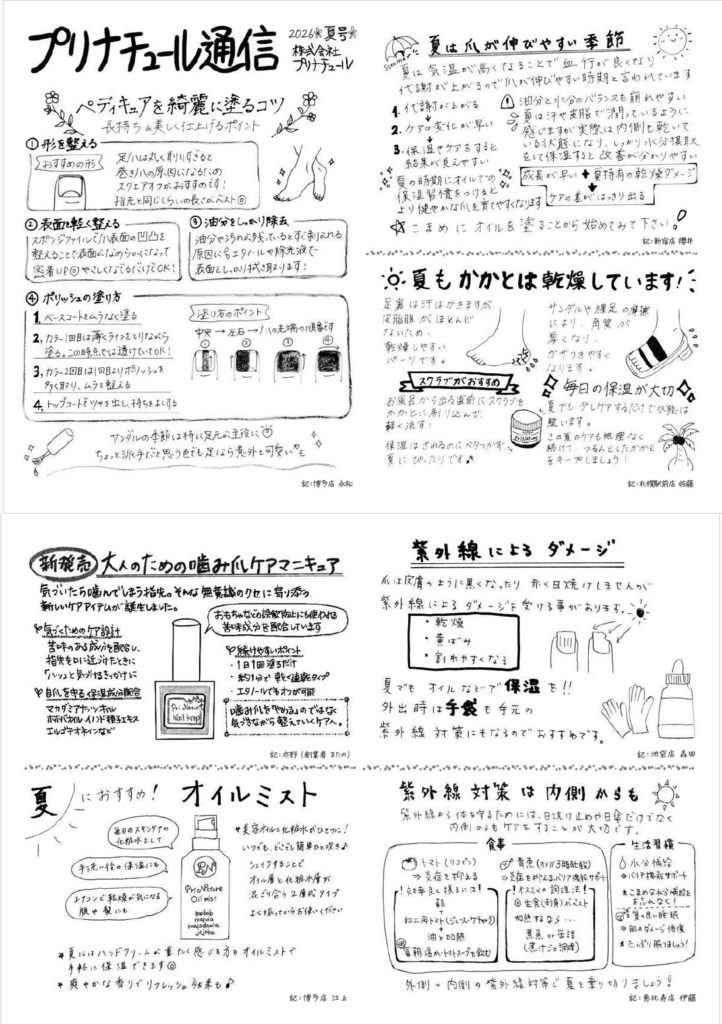 プリナチュール通信
2026年夏号
株式会社
プリナチュール
ペディキュアを綺麗に塗るコツ
長持ち&美しく仕上げるポイント
① 形を整える
おすすめの形
足爪は丸く削りすぎると
巻き爪の原因になるため
スクエアオフがおすすめです!
指先と同じくらいの長さがベスト
② 表面を軽く整える
スポンジファイルで爪表面の凹凸を
整えることで表面がなめらかになって
密着UP やさしくなでるだけでOK!
③ 油分をしっかり除去
油分や汚れが残っているとすぐ剥がれる
原因に エタノールや除光液で
表面をしっかり拭き取ります!
④ ポリッシュの塗り方
1. ベースコートをムラなく塗る
2. カラー1回目は薄くラインをとりながら
塗る。この時点では透けててもOK!
3. カラー2回目は1回目よりポリッシュを
多く取り、ムラを整える
4. トップコートでツヤを出し、持ちをよくする
塗り方のポイント
中央→左右→爪の先端の順番です
① ② ③ ④
サンダルの季節は特に足元が主役に
ちょっと派手かなと思う色でも足になら意外と可愛い
記:博多店 永松
summer
夏は爪が伸びやすい季節
夏は気温が高くなることで血行が良くなり
代謝が上がるので爪が伸びやすい時期と言われています
1. 代謝が上がる
↓
2. ケアの変化が早い
↓
3. 保湿やケアをすると
結果が見えやすい
夏の時期にオイルでの
保湿習慣をつけると
より健やかな爪を育てやすくなります
油分と水分のバランスも崩れやすい
夏は汗や皮脂で潤っているように
感じますが実際は内側も乾いて
いる状態になり、しっかり水分補給を
をして保湿すると改善が分かりやすい
成長が早い + 夏特有の乾燥ダメージ
ケアの差がはっきり出る
☆ こまめにオイルを塗ることから始めてみて下さい!
記:新宿店 櫻井
夏もかかとは乾燥しています!
足裏は汗はかきますが
皮脂腺がほとんど
ないため、
乾燥しやすい
パーツです。
サンダルや裸足の摩擦
により、角質が
厚くなり、
ガサつきやすく
なります。
スクラブがおすすめ
お風呂から出る直前にスクラブを
かかとに刷り込んで、
軽く流す!
保湿はされるのにベタつかず、
夏にぴったりです♪
毎日の保湿が大切
夏でも少しケアするだけで状態は
整います。
この夏のケアも無理なく
続けて、つるんとしたかかと
をキープしましょう!
記:札幌駅前店 佐藤
新発売 大人のための噛み爪ケアマニキュア
気づいたら噛んでしまう指先。そんな無意識のクセに寄り添う
新しいケアアイテムが誕生しました。
気づくためのケア設計
苦味のある成分を配合し、
指先を口に近づけたときに
「ハッ」と気づけるきっかけに
自爪を守る保湿成分配合
マカダミアナッツオイル
ホホバオイル・インドの種子エキス
エルゴチオネインなど
Pri Nature
Nail keep
おもちゃなどの誤飲防止にも使われる
苦味成分を配合しています
続けやすいポイント
・1日1回塗るだけ
・約1分で乾く速乾タイプ
・エタノールでもオフが可能
噛み爪を「やめる」のではなく
気づきながら整えていくケアへ。
記:水野(創業者 またの)
紫外線によるダメージ
爪は皮膚のように黒くなったり 赤く日焼けしませんが
紫外線によるダメージを受ける事があります。
・乾燥
・黄ばみ
・割れやすくなる
夏でもオイルなどで保湿を!!
外出時は手袋も手元の
紫外線対策にもなるのでおすすめです。
記:池袋店 森田
夏におすすめ! オイルミスト
毎日のスキンケアの
化粧水として
手洗い後の保湿にも
エアコンで乾燥が気になる
腕や髪にも
PN
Pri Nature
Oil mist
baobab
marula
macadamia
jojoba
＊美容オイルと化粧水がひとつに!
いつでも、どこでも簡単ひと吹き♪
シェイクすることで
オイル層と化粧水層が
混ざり合う2層式タイプ
よく振ってからお使いください
＊夏にはハンドクリームが重たく感じる方もオイルミストで
手軽に保湿できます
＊爽やかな香りでリフレッシュ効果も♪
記:博多店 江上
紫外線対策は内側からも
紫外線から体を守るためには、日焼け止めや日傘だけでなく
内側からもケアをすることが大切です。
食事
トマト(リコピン)
⇒炎症を抑える
!効率良く摂るには!
朝
+
加工用トマト(ジュースやケチャップ)
+
油と加熱
毎朝温かいトマトスープを飲む
青魚(オメガ3脂肪酸)
⇒炎症を抑えるバリア機能サポート
!オススメの調理法!
生食(刺身)がベスト
加熱するなら…
蒸魚 or 缶詰
(煮汁ごと調理)
生活習慣
水分補給
⇒バリア機能サポート
★こまめな水分補給を
忘れなく!
質の良い睡眠
⇒肌のダメージ修復
★たっぷり眠りましょう!
外側+内側の紫外線対策で夏を乗り切りましょう!
記:恵比寿店 伊藤